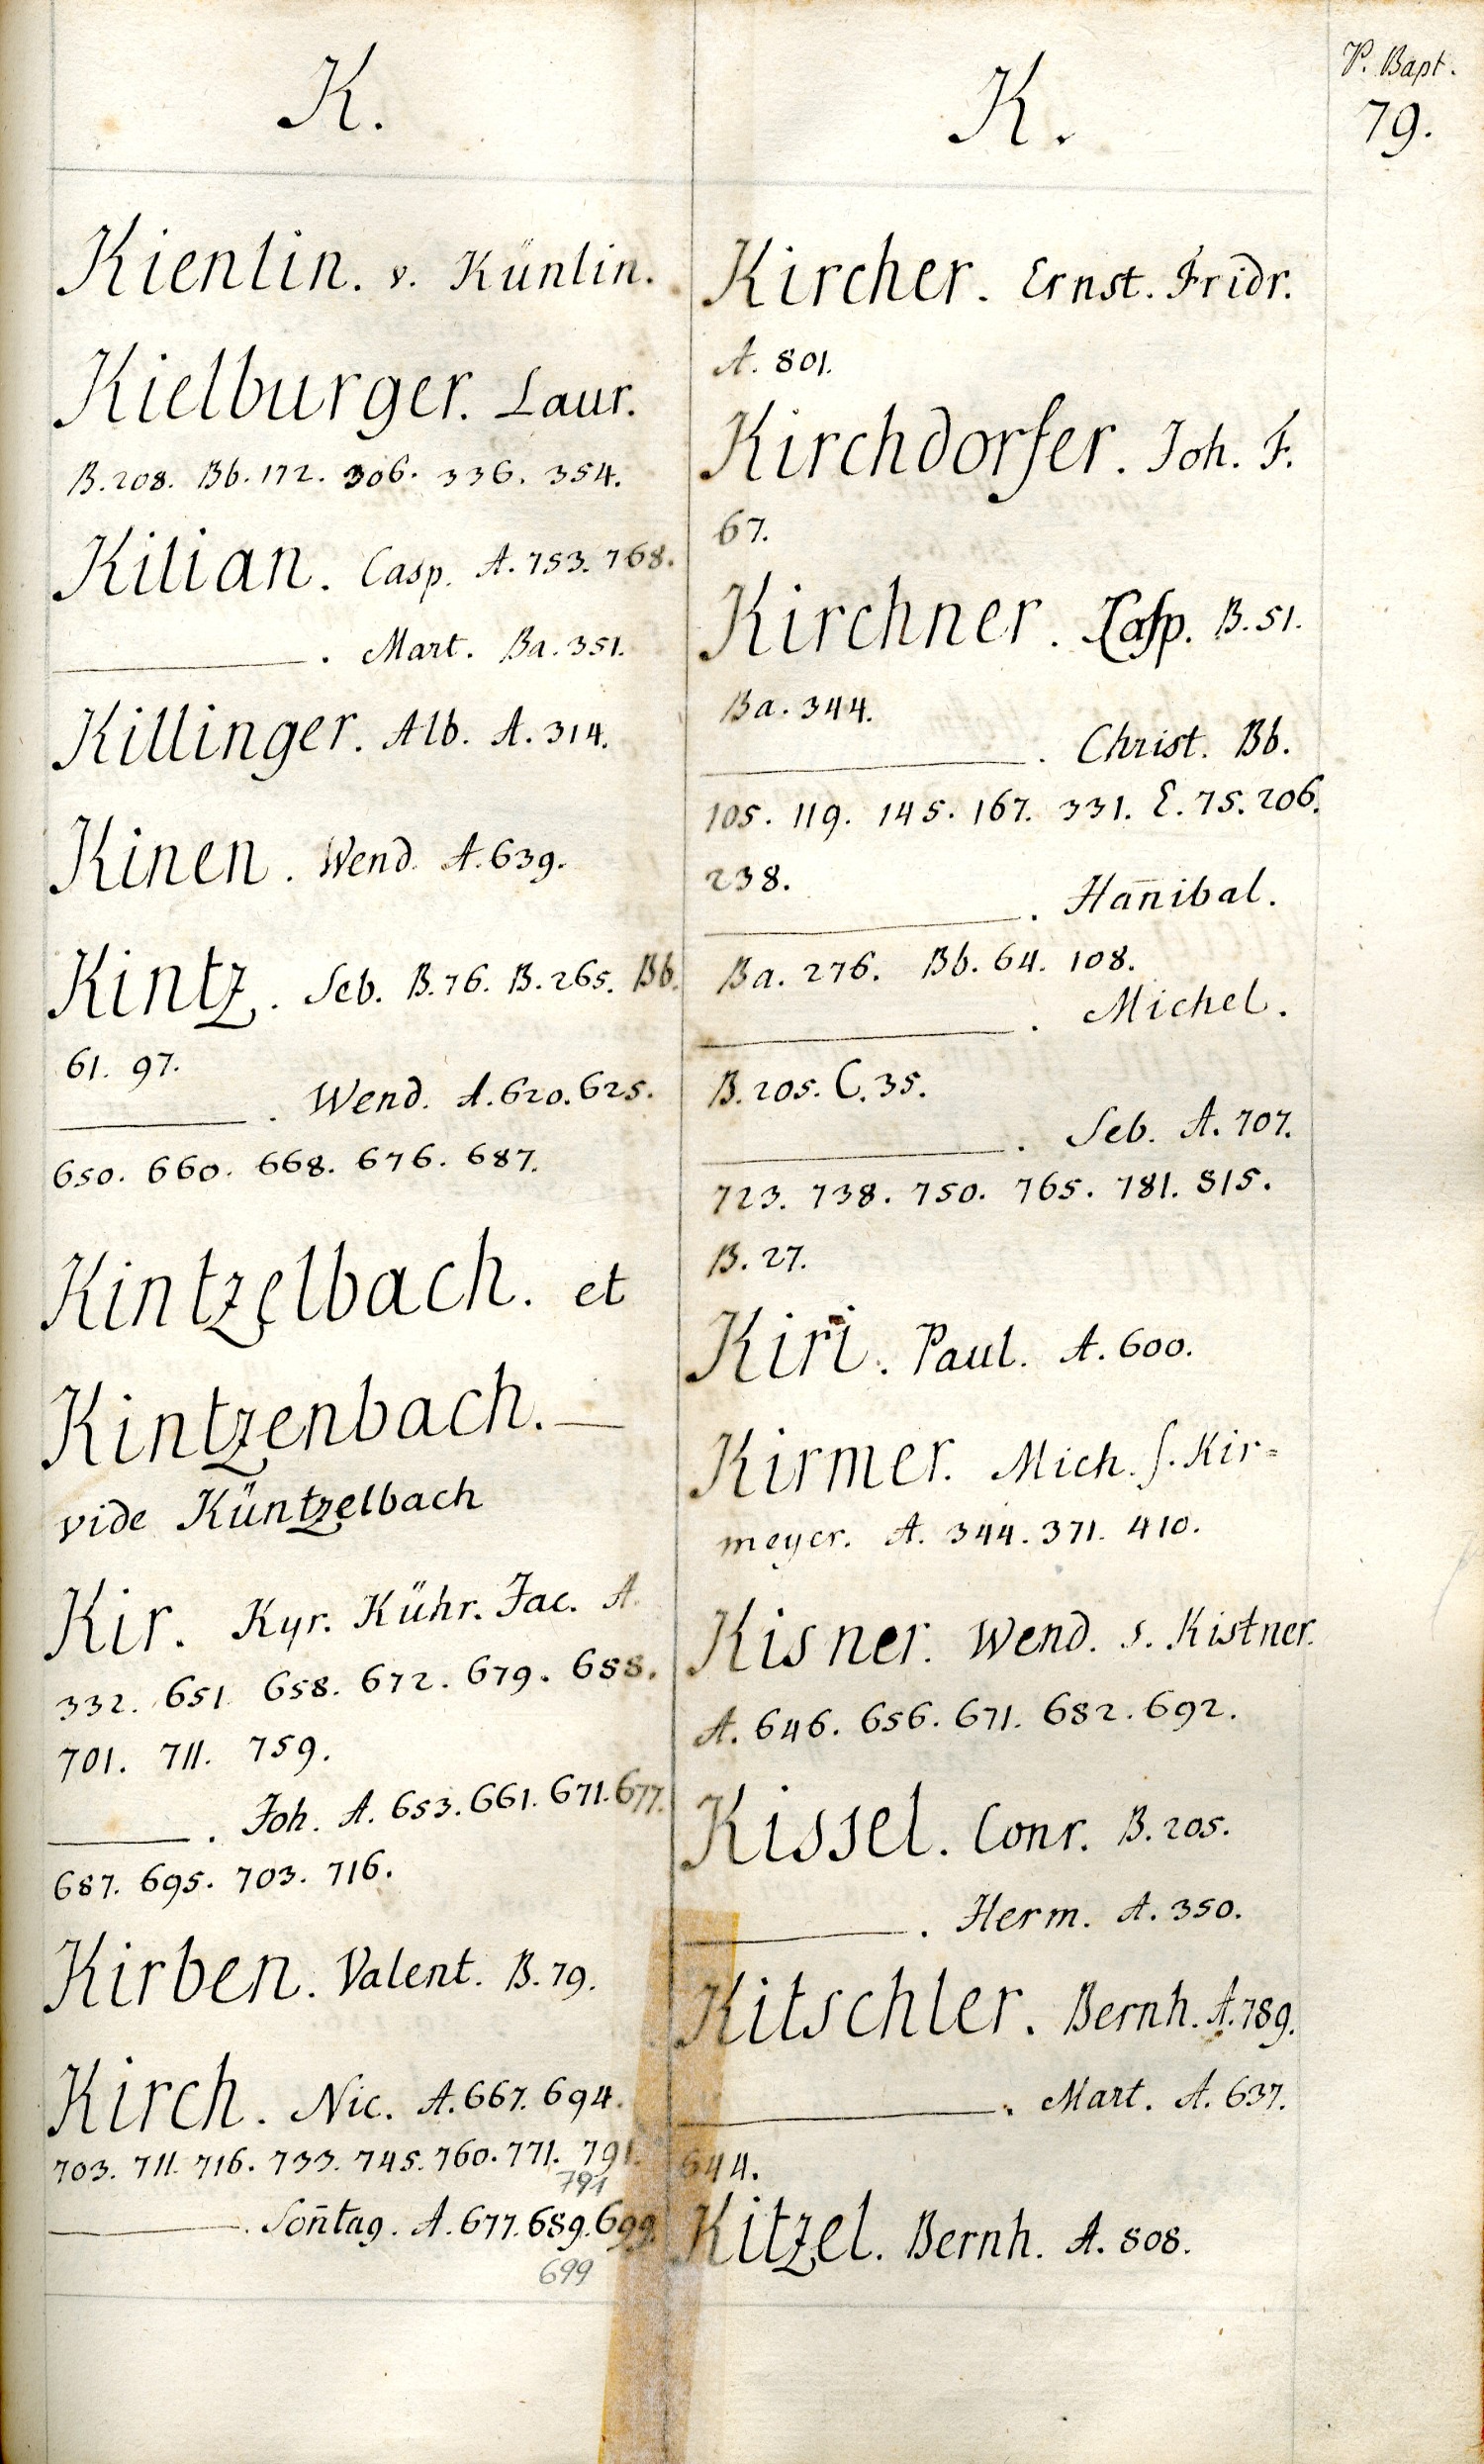 P. Bapt.
79.
K.
Kienlin. v. Künlin.
Kielburger. Laur.
B. 208. Bb. 172. 306. 336. 354.
Kilian. Casp. A. 753. 768.
———. Mart. Ba. 351.
Killinger. Alb. A. 314.
Kinen. Wend. A. 639.
Kintz. Seb. B. 76. B. 265. Bb.
61. 97.
———. Wend. A. 620. 625.
650. 660. 668. 676. 687.
Kintzelbach. et
Kintzenbach. —
vide Küntzelbach
Kir. Kyr. Kühr. Jac. A.
332. 651. 658. 672. 679. 688.
701. 711. 759.
———. Joh. A. 653. 661. 671. 677.
687. 695. 703. 716.
Kirben. Valent. B. 79.
Kirch. Nic. A. 667. 694.
703. 711. 716. 733. 745. 760. 771. 791.
791
———. Son̄tag. A. 677. 689. 699.
699
K.
Kircher. Ernst. Fridr.
A. 801.
Kirchdorfer. Joh. F.
67.
Kirchner. Casp. B. 51.
Ba. 344.
———. Christ. Bb.
105. 119. 145. 167. 331. E. 75. 206.
238.
———. Han̄ibal.
Ba. 276. Bb. 64. 108.
———. Michel.
B. 205. C. 35.
———. Seb. A. 707.
723. 738. 750. 765. 781. 815.
B. 27.
Kiri. Paul. A. 600.
Kirmer. Mich. s. Kir=
meyer. A. 344. 371. 410.
Kisner. Wend. s. Kistner.
A. 646. 656. 671. 682. 692.
Kissel. Conr. B. 205.
———. Herm. A. 350.
Kitschler. Bernh. A. 789.
———. Mart. A. 637.
644.
Kitzel. Bernh. A. 808.